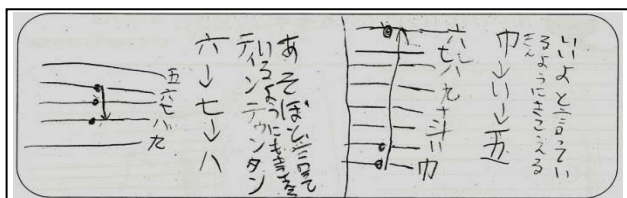 いいよと言ってい
るようにきこえる
巾→い→五
六七八九十斗い巾
あそぼと言って
いるようにきこえる
ティンテゥンタン
六→七→八
五六七八九